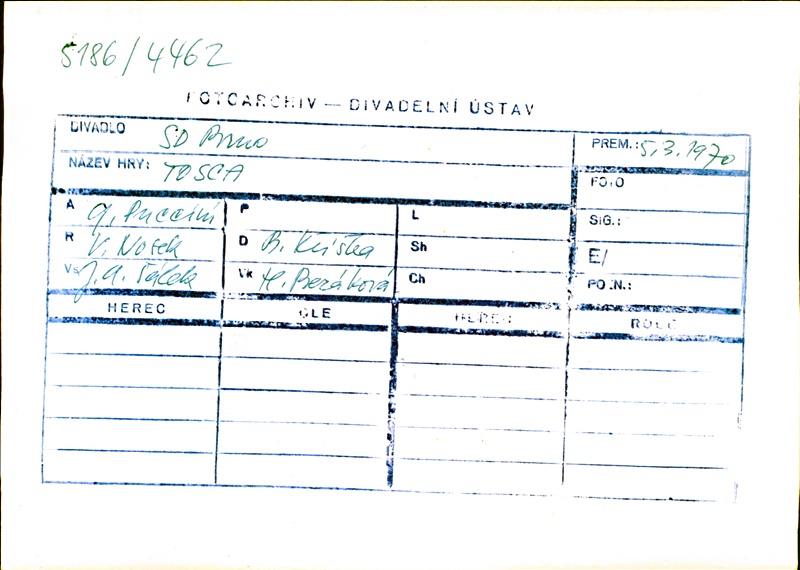 5186/4462
FOTOARCHIV — DIVADELNÍ ÚSTAV
DIVADLO SD Brno
PREM.: 5.3.1970
NÁZEV HRY: TOSCA
FOTO
A G. Puccini P L
SIG.:
R V. Nosek D B. Kriška Sh
E/
Vs J. A. Šálek Vk H. Bezáková Ch
POZN.:
HEREC ROLE HEREC ROLE